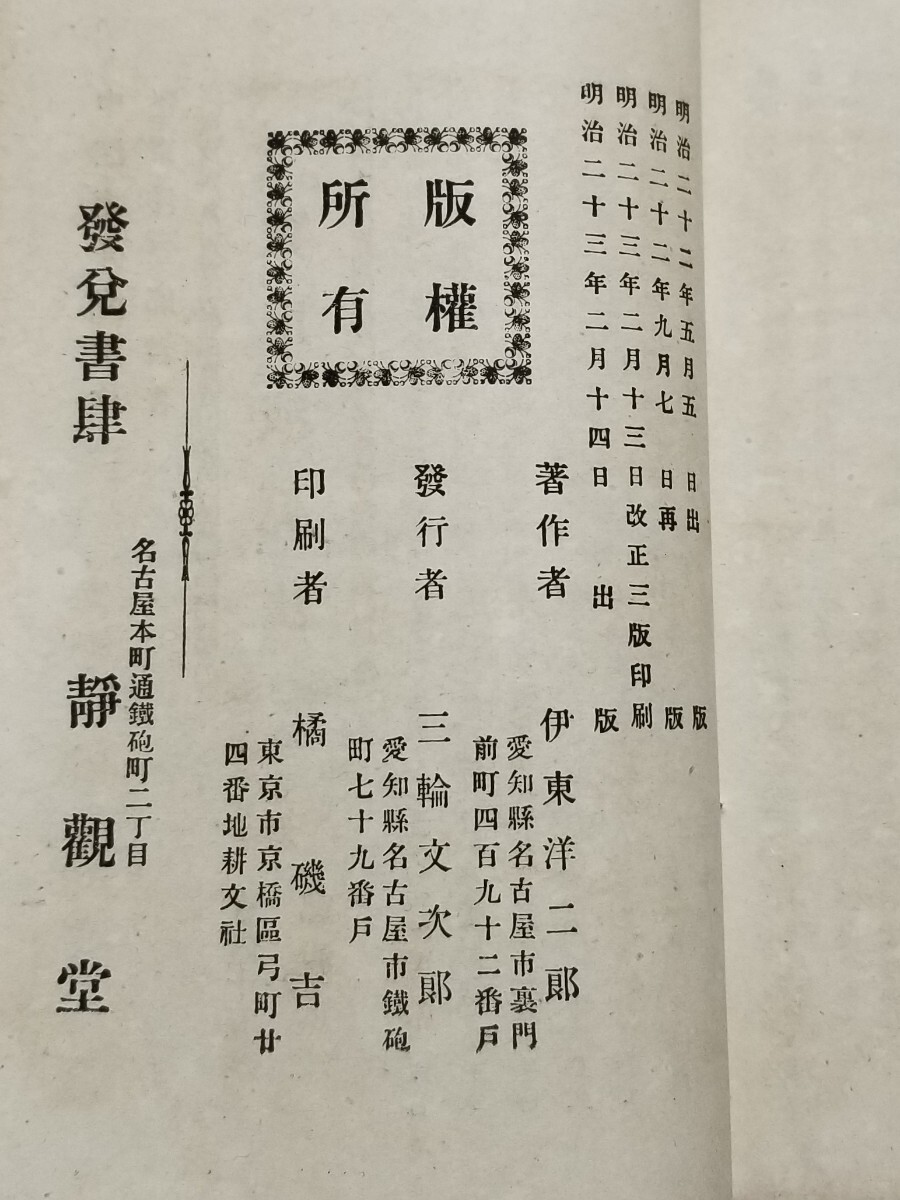 明治二十二年五月五日出版
明治二十二年九月七日再版
明治二十三年二月十三日改正三版印刷
明治二十三年二月十四日出版
版權
所有
著作者 伊東洋二郎
愛知縣名古屋市裏門
前町四百九十二番戸
發行者 三輪文次郎
愛知縣名古屋市鐵砲
町七十九番戸
印刷者 橘磯吉
東京市京橋區弓町廿
四番地耕文社
發兌書肆
名古屋本町通鐵砲町二丁目
靜觀堂